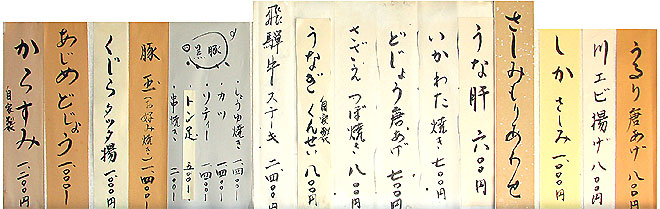 うるり唐あげ 八〇〇円
川エビ揚げ 八〇〇円
しか さしみ 一、〇〇〇円
さしみもりあわせ
うな肝 六〇〇円
いかわた焼き 七〇〇円
どじょう唐あげ 七〇〇円
さざえ つぼ焼き 八〇〇円
うなぎ くんせい 自家製 八〇〇円
飛騨牛ステーキ 二、四〇〇円
豚
・しょうゆ焼き 一、四〇〇-
・カツ 一、四〇〇-
・ソティー 一、四〇〇-
トン足 五〇〇-
串焼き 二〇〇-
豚玉(お好み焼き) 一、四〇〇-
くじらタツタ揚 一、〇〇〇円
あじめどじょう 一、〇〇〇-
からすみ 自家製 一、二〇〇円